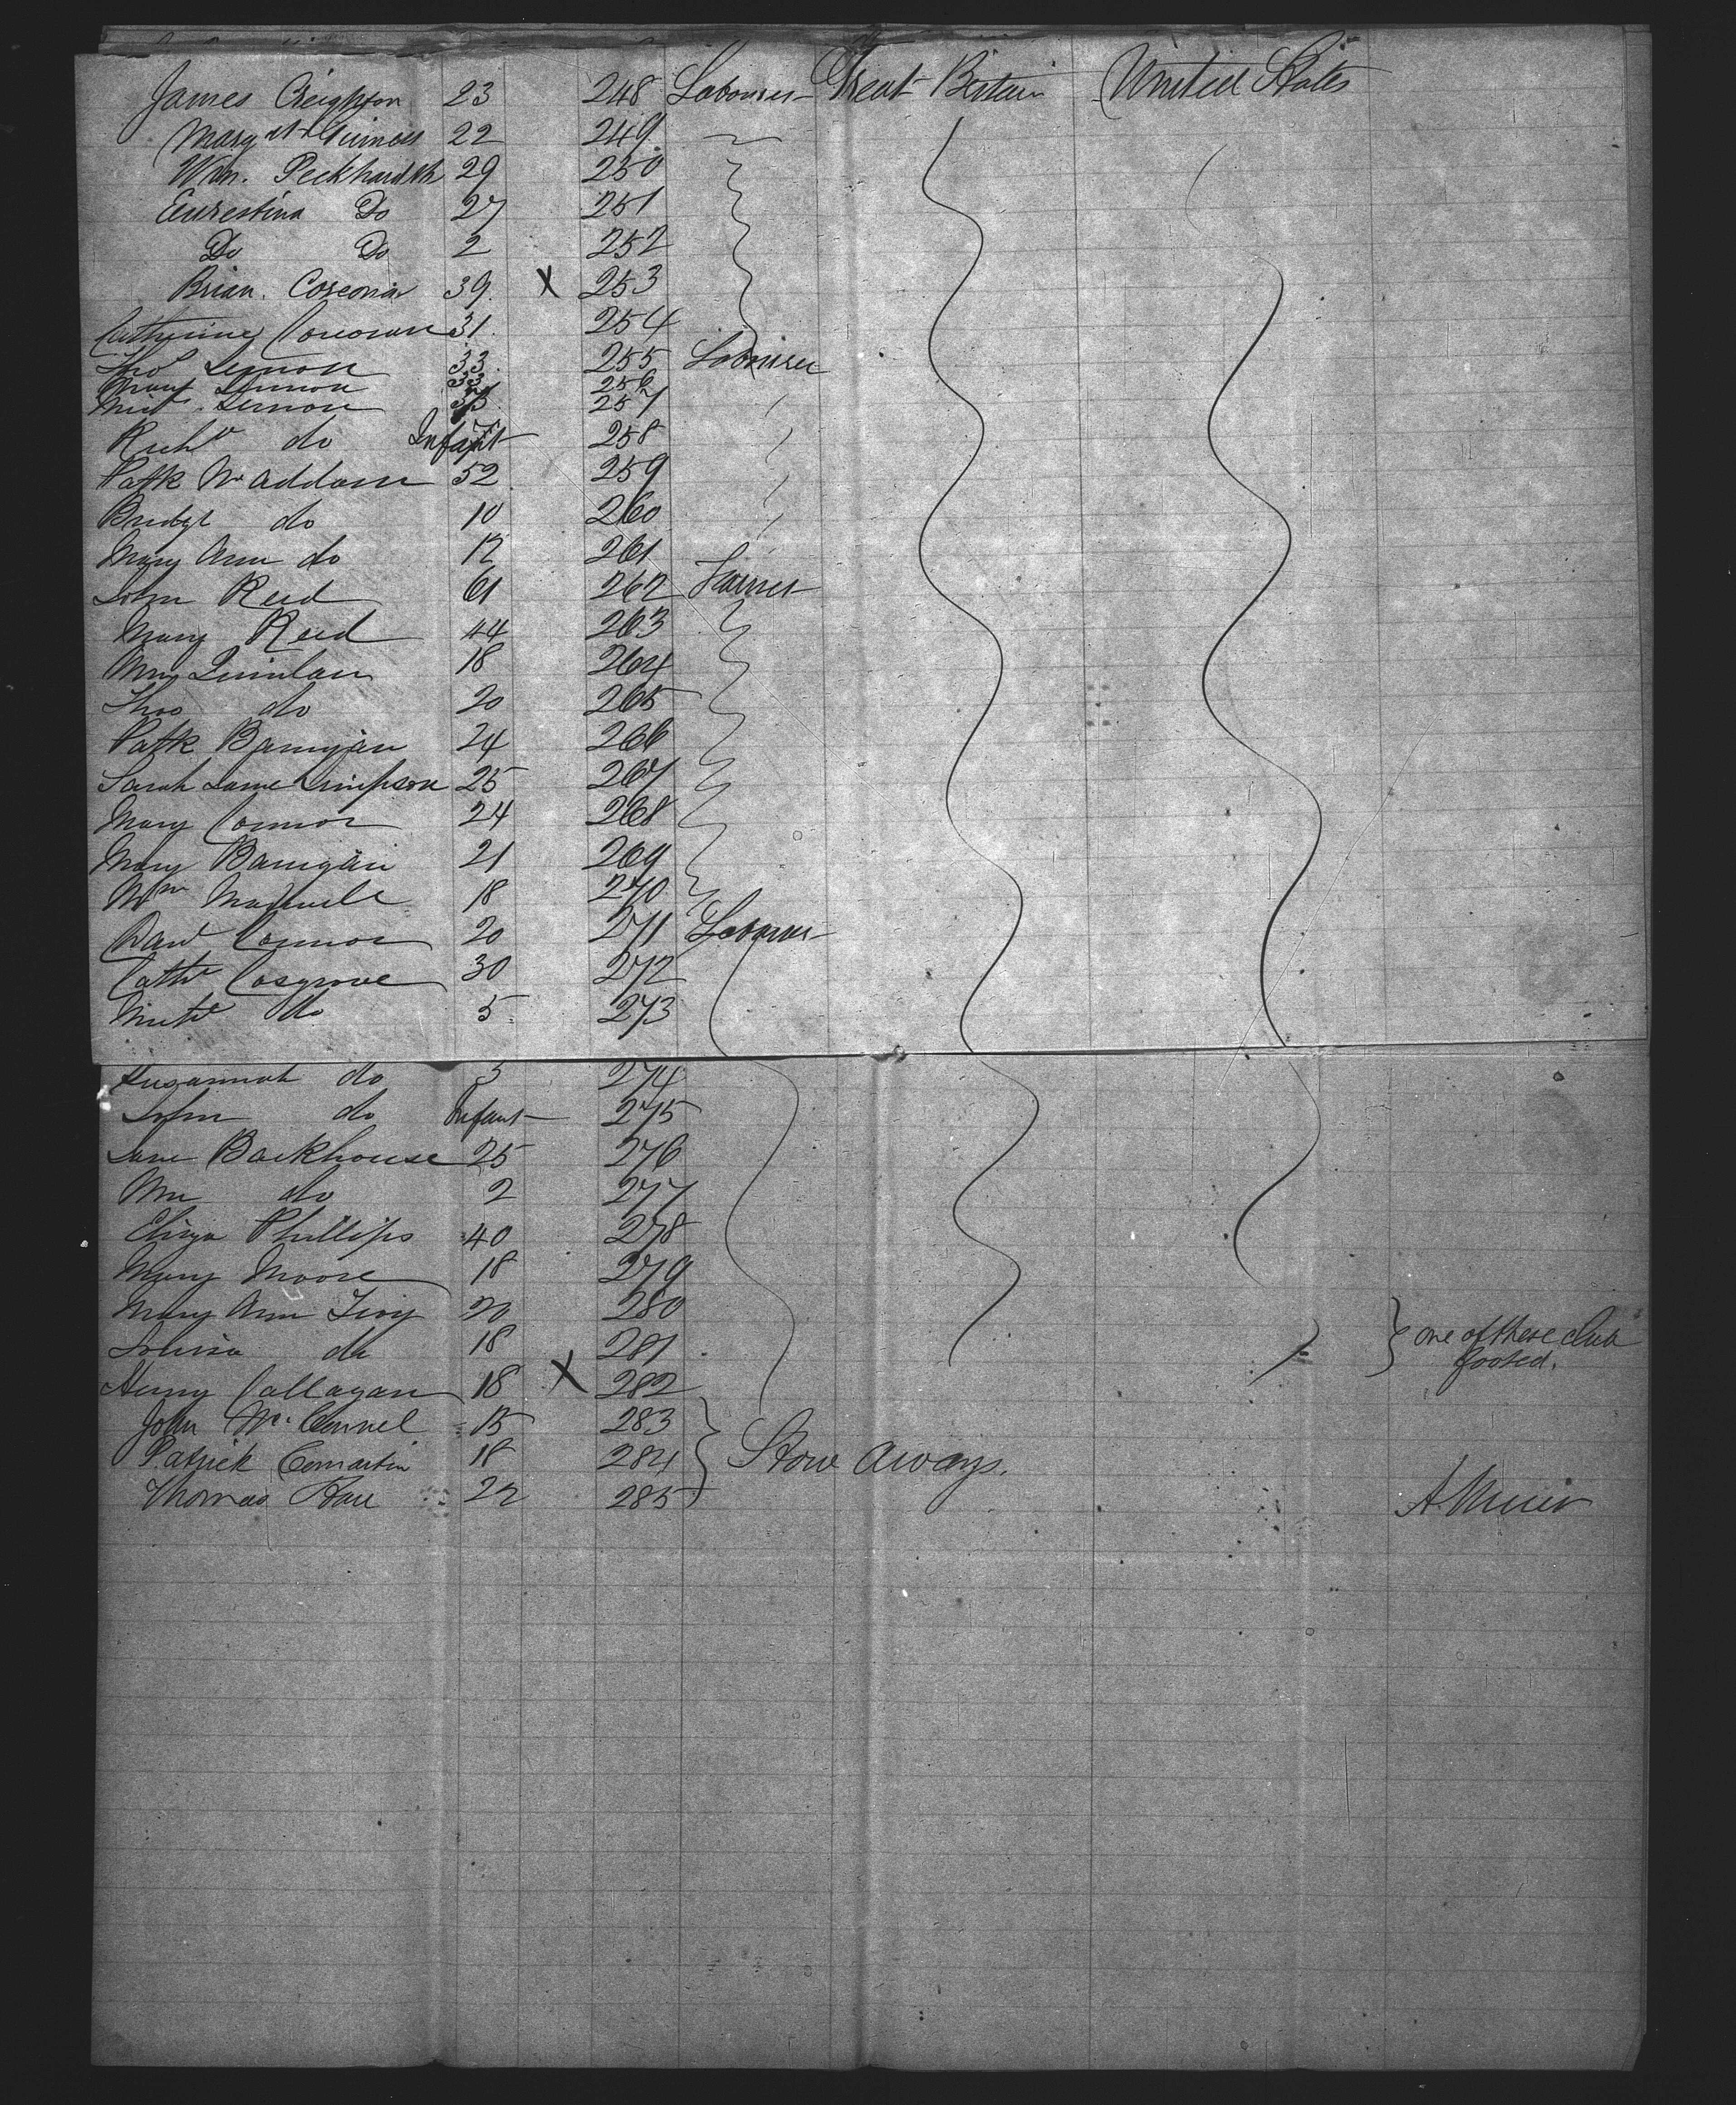 James Creighton 23 248 Labourer Great Britain United States
Margt 22 249
Wm. Peckhardth 29 250
Do 27 251
Do Do 2 252
Brian. 39 X 253
Catherine Corcoran 31 254
Thos Lemon 33 255 Labourer
Lemon 33 256
Lemon 257
Richd do Infant 258
Patk 52 259
Bridgt do 10 260
Mary Ann do 12 261
John Reed 61 262 Farmer
Mary Reed 44 263
Wm Quinlan 18 264
Thos do 20 265
Patk Banigan 24 266
Sarah Jane Simpson 25 267
Mary Connor 24 268
Mary Banigan 21 269
Wm 18 270
Davd Connor 20 271 Labourer
Cathe Cosgrove 30 272
do 5 273
Susannah do 3 274
John do Infant 275
Jane Backhouse 25 276
Wm do 2 277
Eliza Phillips 40 278
Mary Moore 18 279
Mary Ann 20 280
Louisa do 18 281 one of these club footed.
Henry Callagan 18 X 282
John McConnel 15 283
Patrick 18 284 Stow aways.
Thomas 22 285 A. Muir